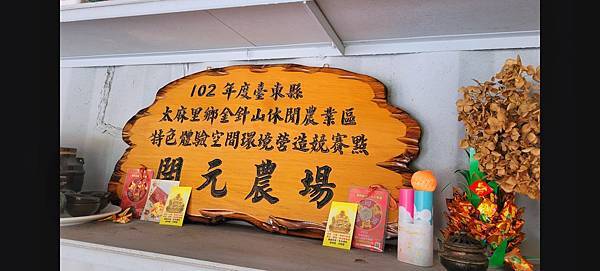 102年度臺東縣
太麻里鄉金針山休閒農業區
特色體驗空間環境營造競賽點
開元農場